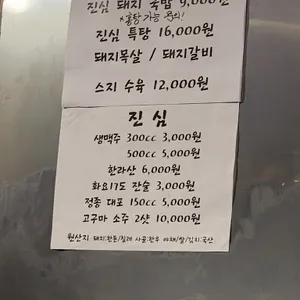 진심 돼지 국밥 9,000원
진심 특탕 16,000원
돼지목살 / 돼지갈비
스지 수육 12,000원
진심
생맥주 300cc 3,000원
500cc 5,000원
한라산 6,000원
화요17도 잔술 3,000원
정종 대포 150cc 5,000원
고구마 소주 2샷 10,000원
원산지 돼지:한돈/칠레 사골:한우 야채/쌀/김치:국산